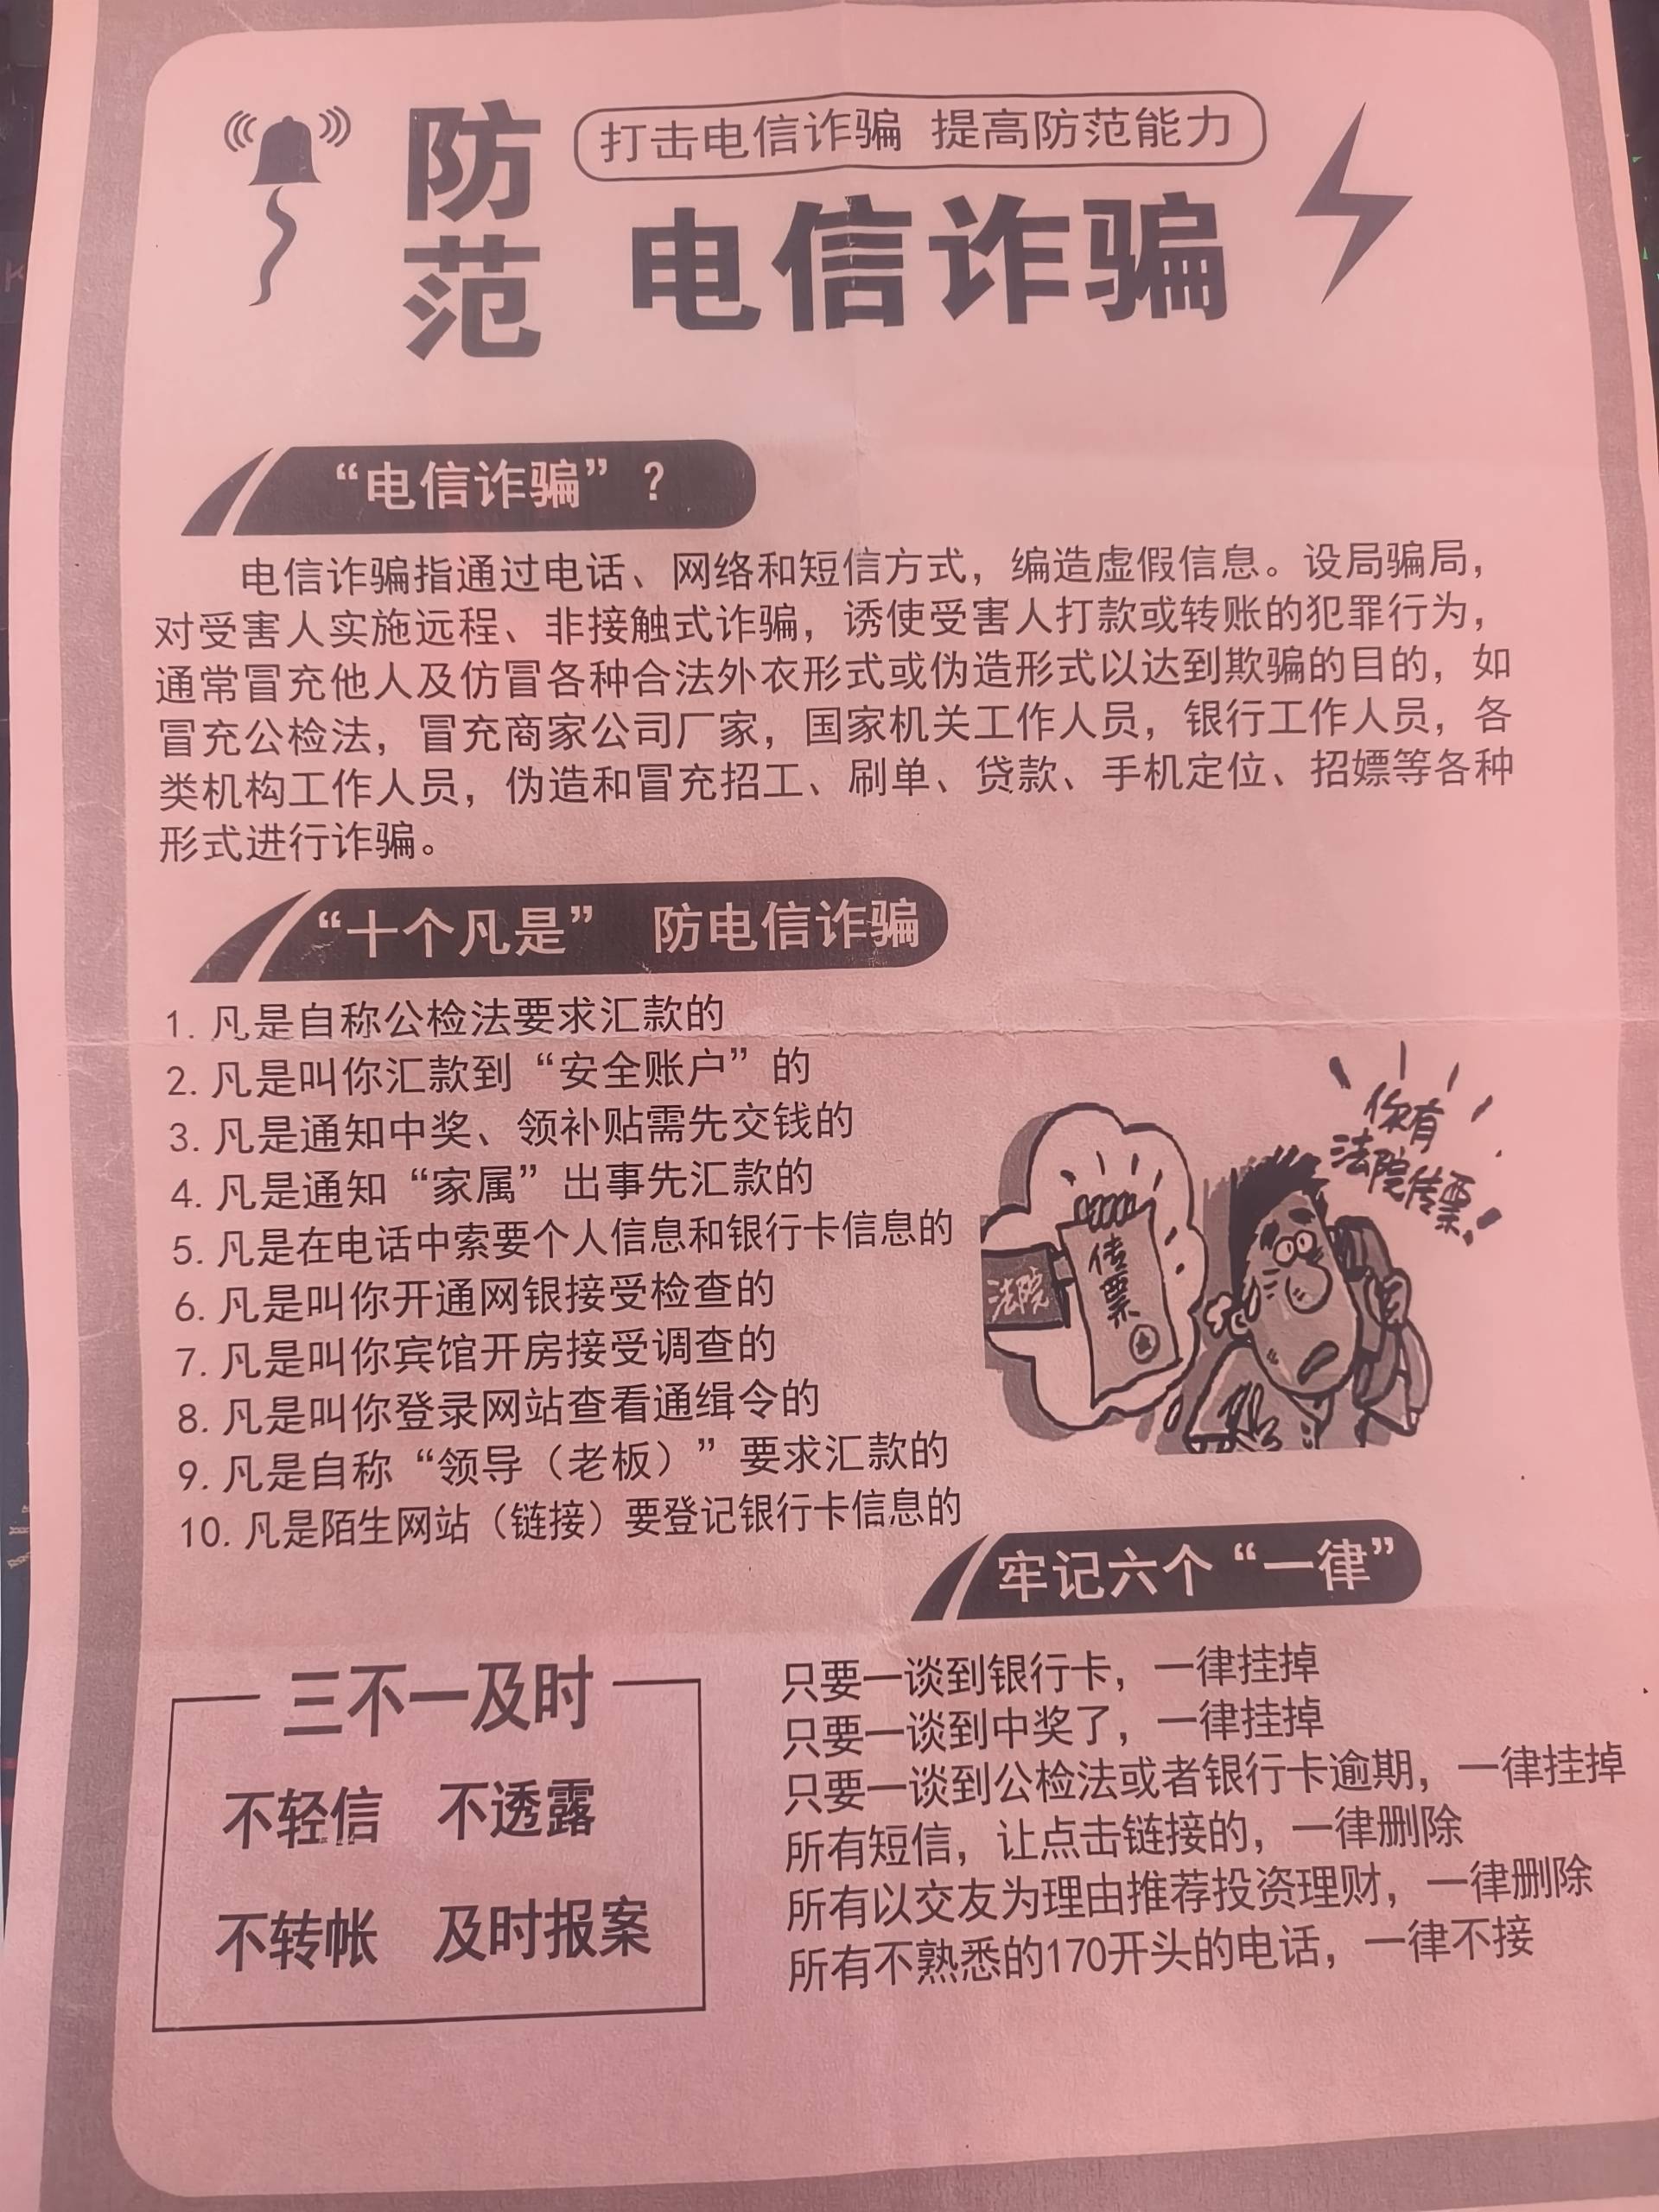 打击电信诈骗 提高防范能力
防范
电信诈骗
“电信诈骗”？
电信诈骗指通过电话、网络和短信方式，编造虚假信息。设局骗局，
对受害人实施远程、非接触式诈骗，诱使受害人打款或转账的犯罪行为，
通常冒充他人及仿冒各种合法外衣形式或伪造形式以达到欺骗的目的，如
冒充公检法，冒充商家公司厂家，国家机关工作人员，银行工作人员，各
类机构工作人员，伪造和冒充招工、刷单、贷款、手机定位、招嫖等各种
形式进行诈骗。
“十个凡是” 防电信诈骗
1. 凡是自称公检法要求汇款的
2. 凡是叫你汇款到“安全账户”的
3. 凡是通知中奖、领补贴需先交钱的
4. 凡是通知“家属”出事先汇款的
5. 凡是在电话中索要个人信息和银行卡信息的
6. 凡是叫你开通网银接受检查的
7. 凡是叫你宾馆开房接受调查的
8. 凡是叫你登录网站查看通缉令的
9. 凡是自称“领导（老板）”要求汇款的
10. 凡是陌生网站（链接）要登记银行卡信息的
你有
法院传票！
传票
法院
牢记六个“一律”
只要一谈到银行卡，一律挂掉
只要一谈到中奖了，一律挂掉
只要一谈到公检法或者银行卡逾期，一律挂掉
所有短信，让点击链接的，一律删除
所有以交友为理由推荐投资理财，一律删除
所有不熟悉的170开头的电话，一律不接
三不一及时
不轻信 不透露
不转帐 及时报案